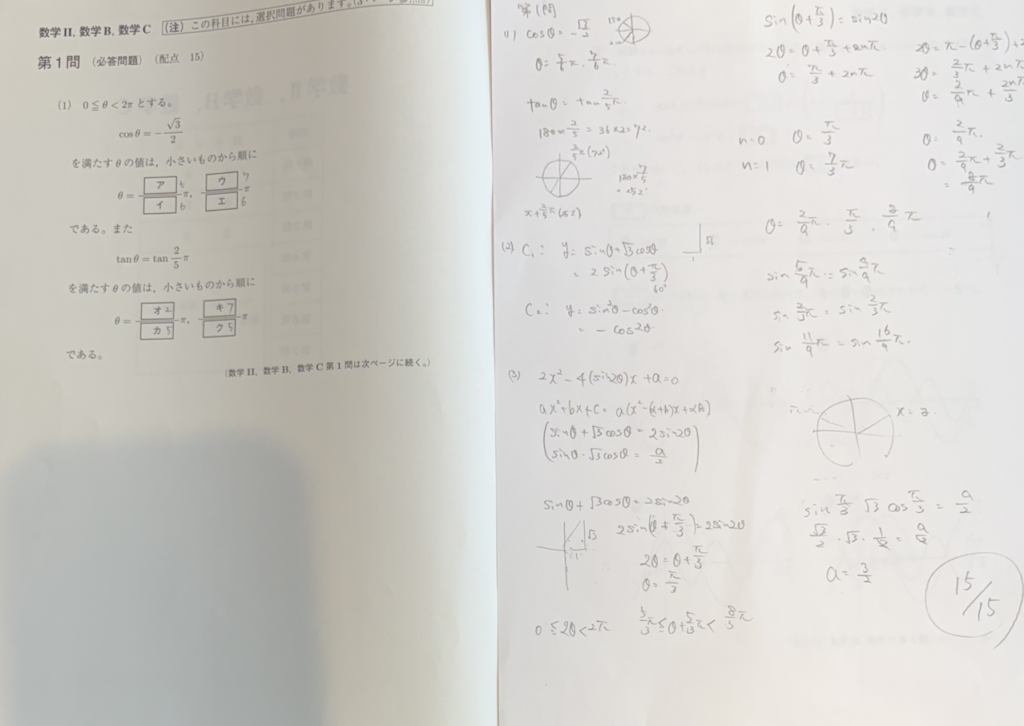 数学II, 数学B, 数学C (注) この科目には, 選択問題があります。
第1問 (必答問題) (配点 15)
(1) 0≦θ<2πとする。
cosθ=-√3/2
を満たすθの値は, 小さいものから順に
θ= ア 5/イ 6 π, ウ 7/エ 6 π
である。また
tanθ=tan 2/5 π
を満たすθの値は, 小さいものから順に
θ= オ 2/カ 5 π, キ 7/ク 5 π
である。
(数学II, 数学B, 数学C第1問は次ページに続く。)
第1問
(1) cosθ=-√3/2
θ=5/6π. 7/6π.
tanθ=tan 2/5π.
180×2/5=36×2=72.
2/5π(72°)
180×7/5
=252°
π+2/5π(252)
(2) C₁: y=sinθ+√3cosθ
=2sin(θ+π/3)
60°
√3
1
C₂: y=sin²θ-cos²θ.
=-cos2θ.
(3) 2x²-4(sin2θ)x+a=0
ax²+bx+c=a(x²-(α+β)x+αβ)
sinθ+√3cosθ=2sin2θ
sinθ·√3cosθ=a/2
sinθ+√3cosθ=2sin2θ
√3
1
2sin(θ+π/3)=2sin2θ
2θ=θ+π/3
θ=π/3
0≦2θ<2π
sin(θ+π/3)=sin2θ
2θ=θ+π/3+2nπ
θ=π/3+2nπ
2θ=π-(θ+π/3)+2
3θ=2/3π+2nπ
θ=2/9π+2nπ/3
n=0 θ=π/3 θ=2/9π.
n=1 θ=7/3π θ=2/9π+2/3π
=8/9π
θ=2/9π. π/3. 8/9π
sin 5/9π=sin 4/9π
sin 2/3π=sin 2/3π
sin 11/9π=sin 16/9π.
sin π/3 √3 cos π/3=a/2
√3/2·√3·1/2=a/2
a=3/2
15/15